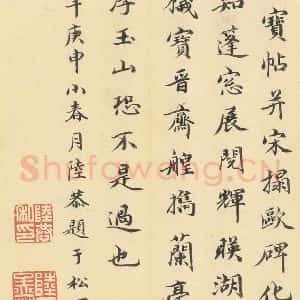 寶帖并宋搨歐碑化
知蓬窓展閱輝暎湖
寶晉齋艎撟蘭亭
浮玉山恐不是過也
庚申小春月陸恭題于松
Shufawang.CN